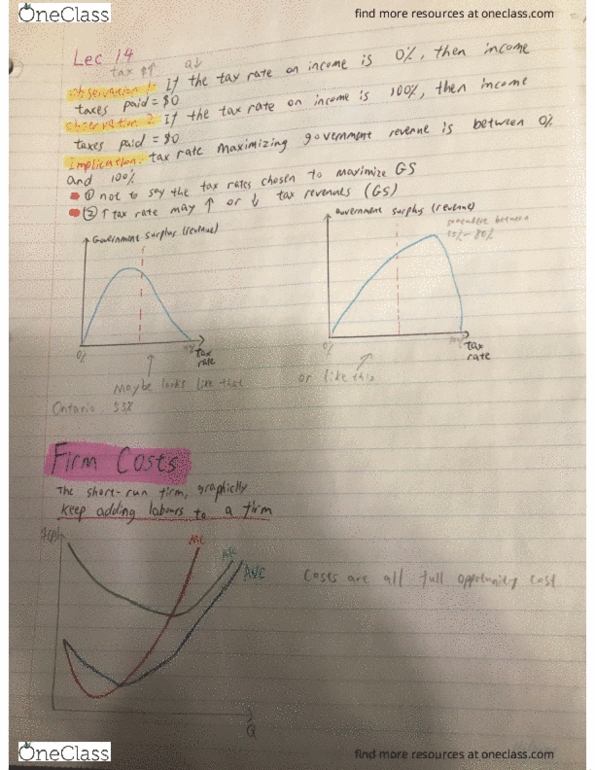 OneClass
find more resources at oneclass.com
Lec 14
tax $↑ Q↓
Observation 1: If the tax rate on income is 0%, then income
taxes paid = $0
Observation 2: If the tax rate on income is 100%, then income
taxes paid = $0
Implication: tax rate maximizing government revenue is between 0%
and 100%
① not to say the tax rates chosen to maximize GS
② ↑ tax rate may ↑ or ↓ tax revenues (GS)
Government surplus (revenue)
Government surplus (revenue)
somewhere between
80%
0%
tax
rate
0%
100%
tax
rate
Maybe looks like that
or like this
Ontario 53%
Firm Costs
The short-run firm, graphically
keep adding labours to a firm
MC
AC
AVC
Costs are all full opportunity cost
Q
OneClass
find more resources at oneclass.com